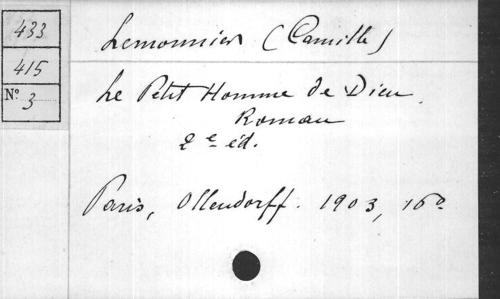 433
415
N° 3
Lemonnier (Camille)
Le Petit Homme de Dieu.
Roman
2e éd.
Paris, Ollendorff. 1903, 16o